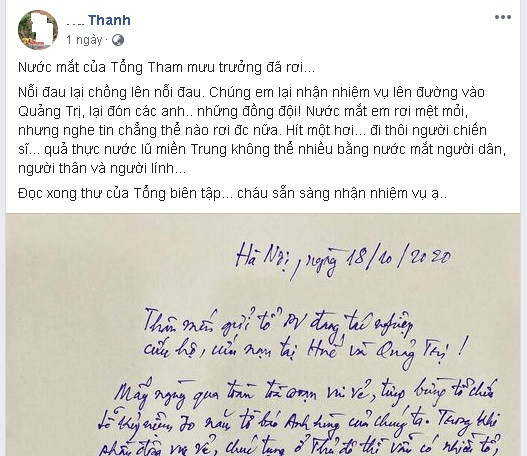 .... Thanh
1 ngày
Nước mắt của Tổng Tham mưu trưởng đã rơi...
Nỗi đau lại chồng lên nỗi đau. Chúng em lại nhận nhiệm vụ lên đường vào
Quảng Trị, lại đón các anh.. những đồng đội! Nước mắt em rơi mệt mỏi,
nhưng nghe tin chẳng thể nào rơi đc nữa. Hít một hơi... đi thôi người chiến
sĩ... quả thực nước lũ miền Trung không thể nhiều bằng nước mắt người dân,
người thân và người lính...
Đọc xong thư của Tổng biên tập... cháu sẵn sàng nhận nhiệm vụ ạ..
Hà Nội, ngày 18/10/2020
Thân mến gửi tổ PV đang tác nghiệp
cứu hộ, cứu nạn tại Huế và Quảng Trị!
Mấy ngày qua toàn tòa soạn vui vẻ, tưng bừng tổ chức
kỷ niệm 70 năm tờ báo Anh hùng của chúng ta. Trong khi
vui vẻ, chúc tụng ở Thủ đô thì vẫn có nhiều tổ,